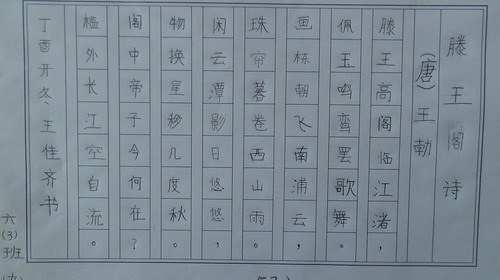 滕王阁诗
(唐)王勃
滕王高阁临江渚，
佩玉鸣鸾罢歌舞。
画栋朝飞南浦云，
珠帘暮卷西山雨。
闲云潭影日悠悠，
物换星移几度秋。
阁中帝子今何在？
槛外长江空自流。
丁酉开冬、王佳齐书
六(3)班